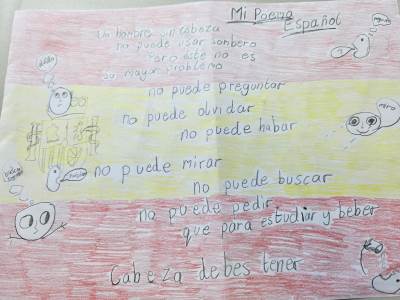 Mi Poema
Español
Un hombre sin cabeza
no puede usar sombero
Pero este no es
su mayor problema
no puede preguntar
no puede olvidar
no puede habar
no puede mirar
no puede buscar
no puede pedir
que para estudiar y beber
Cabeza debes tener